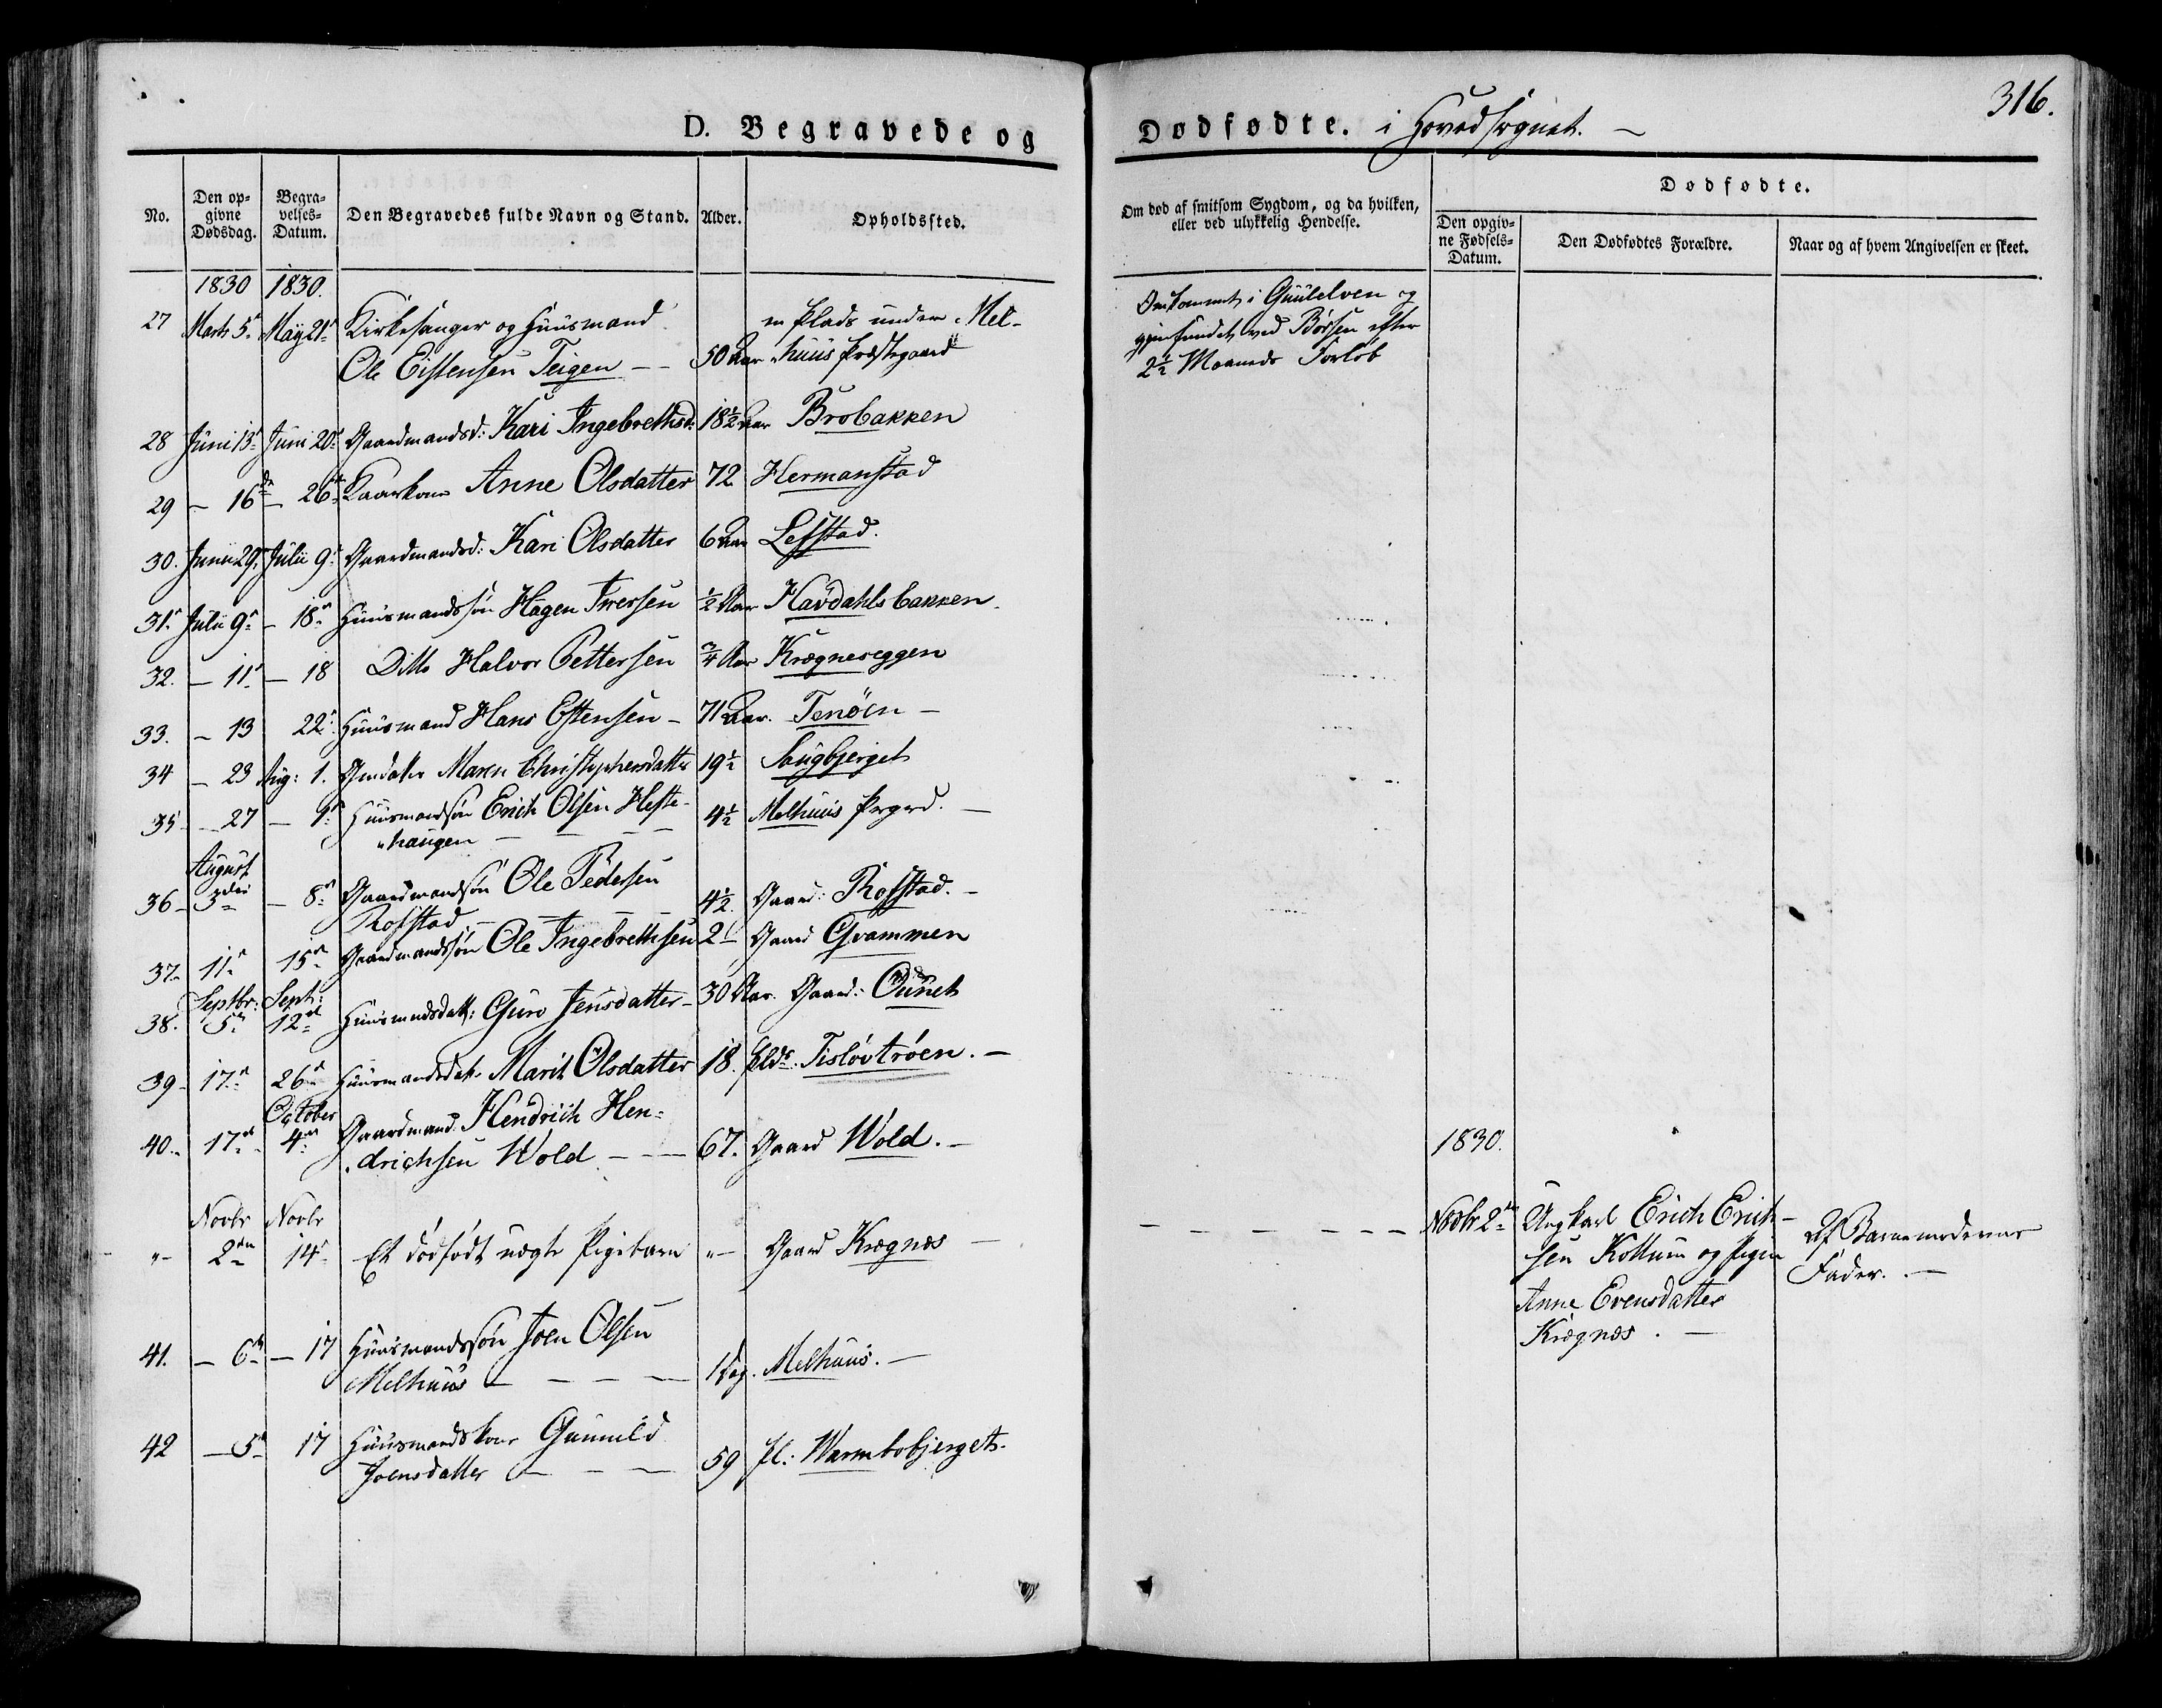 316.
D. Begravede og Dødfødte. i Hovedsognet. —
No.
Den opgivne Dødsdag.
Begravelses-Datum.
Den Begravedes fulde Navn og Stand.
Alder.
Opholdssted.
Om død af smitsom Sygdom, og da hvilken,
eller ved ulykkelig Hendelse.
Dødfødte.
Den opgivne Fødsels-Datum.
Den Dødfødtes Forældre.
Naar og af hvem Angivelsen er skeet.
1830 1830.
27 Marts 5. May 21. Kirkesanger og Huusmand en Plads under Mel-
Ole Eistensen Teigen — — 50 Aar huus Præstegaard
Omkommet i Guulelven og
gjenfundet ved Børsen efter
2½ Maaneds Forløb
28 Juni 13. Juni 20. Gaardmandsd: Kari Ingebrethsd: 18½ Aar Brobakken
29 — 16 — 26 Kaarkone Anne Olsdatter 72 Hermanstad
30. Junii 29. Julii 9. Gaardmandsd: Kari Olsdatter 6 Aar Lefstad.
31. Julii 9. — 18. Huusmandssøn Hagen Iversen ½ Aar Havdahlsbakken.
32. — 11. — 18 Ditto Halvor Pettersen ¾ Aar Krægneseggen
33. — 13 22. Huusmand Hans Estensen — 71 Aar. Tenøen —
34 — 23 Aug: 1. Maren Christophersdatter 19½ Saugbjerget
35 — 27 — Huusmandssøn Erich Olsen Heste- 4½ Melhuus Prgrd. —
haugen — — —
August
36 — 3 — 8. Gaardmandssøn Ole Pedersen 4½ Gaard: Rofstad. —
Rofstad — — —
37. 11. 15. Gaardmandssøn Ole Ingebrethsen 2 Gaard Gvammen
Septbr: Septr:
38. 5. 12. Huusmndsdatt: Guro Jensdatter — 30 Aar. Gaard: Øunet
39 — 17. 26. Huusmandsdatr Marit Olsdatter 18. Plds: Tisløvtrøen. —
October
40. 17. 4. Gaardmand Hendrich Hen-
drichsen Wold — — 67. Gaard Wold. —
1830.
Novbr Novbr
" — 2den 14. Et dødfødt uægte Pigebarn " — Gaard Krægnæs —
— — — — — — Novbr 2den Ungkarl Erich Erich-
sen Kollum og Pigen
Anne Evensdatter
Krægnæs. —
Af Barnemoderens
Fader. —
41. — 6 — 17 Huusmandssøn Joen Olsen
Melhuus — — — — 1 Dag. Melhuus. —
42 — 5 17 Huusmandskone Gunnild
Joensdatter — — — 59 Pl: Warmbobjerget.